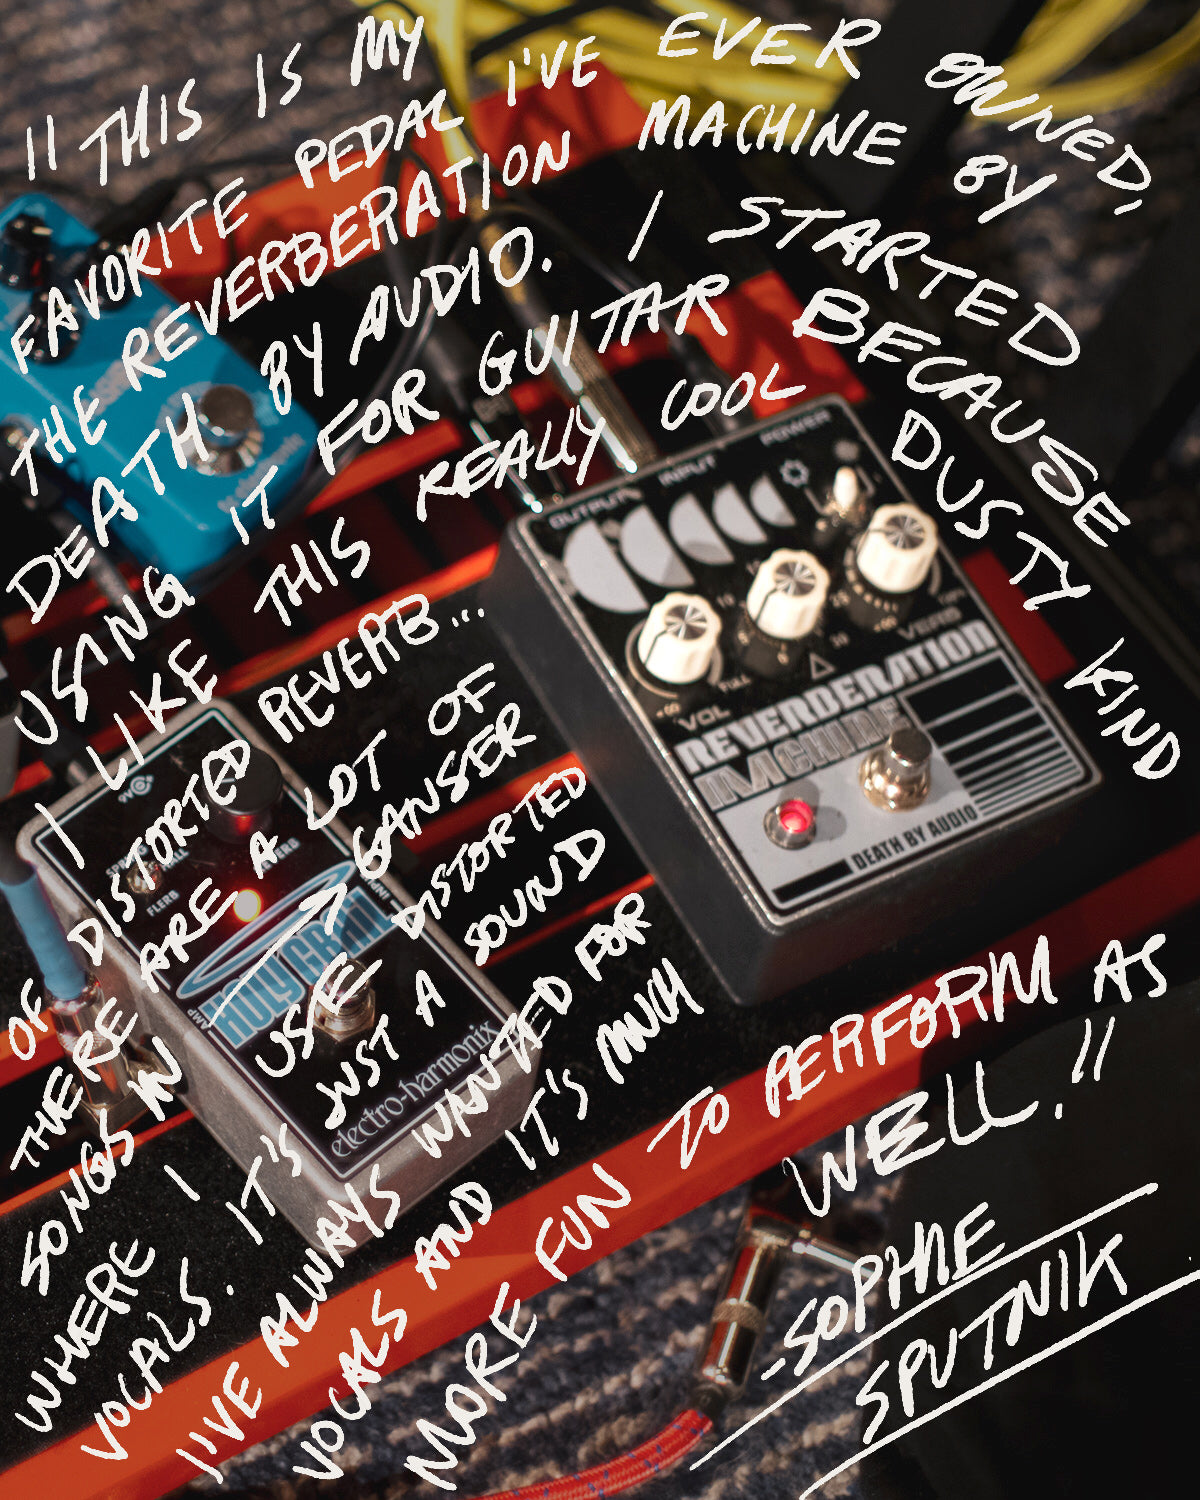 "THIS IS MY
FAVORITE PEDAL I'VE EVER OWNED,
THE REVERBERATION MACHINE BY
DEATH BY AUDIO. I STARTED
USING IT FOR GUITAR BECAUSE
I LIKE THIS REALLY COOL DUSTY KIND
OF DISTORTED REVERB...
THERE ARE A LOT OF
SONGS IN GANSER
WHERE I USE DISTORTED
VOCALS. IT'S JUST A SOUND
I'VE ALWAYS WANTED FOR
VOCALS AND IT'S MUCH
MORE FUN TO PERFORM AS
WELL."
-SOPHIE
SPUTNIK
OUTPUT INPUT POWER
VOL FULL VERB
REVERBERATION
MACHINE
DEATH BY AUDIO
9V
FLERB
INPUT
AMP
HOLY GRAIL
electro-harmonix